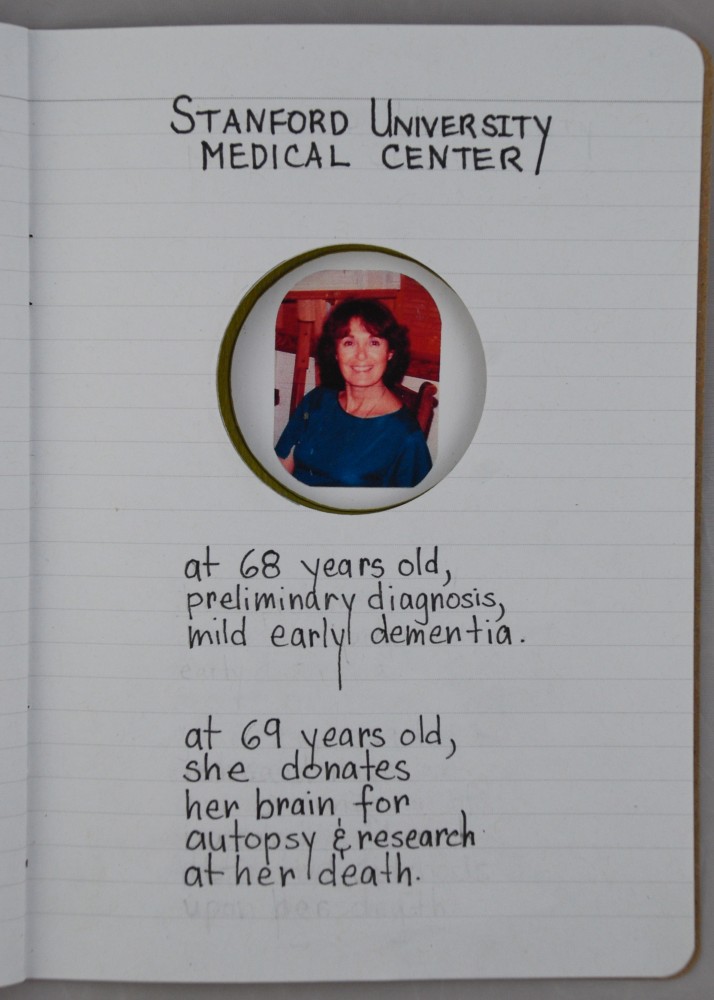 STANFORD UNIVERSITY
MEDICAL CENTER
at 68 years old,
preliminary diagnosis,
mild early dementia.
at 69 years old,
she donates
her brain for
autopsy & research
at her death.